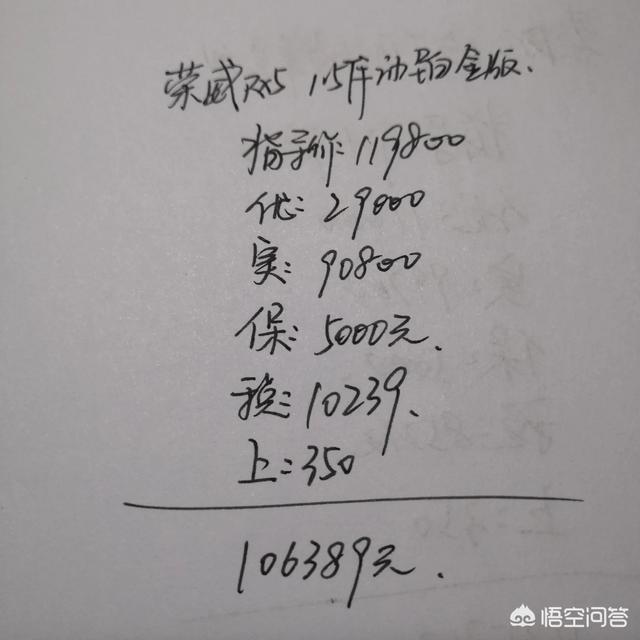 荣威RX5 1.5自动铂金版.
指导价:119800
优:29000
实:90800
保:5000元.
税:10239.
上:350
106389元.
悟空问答